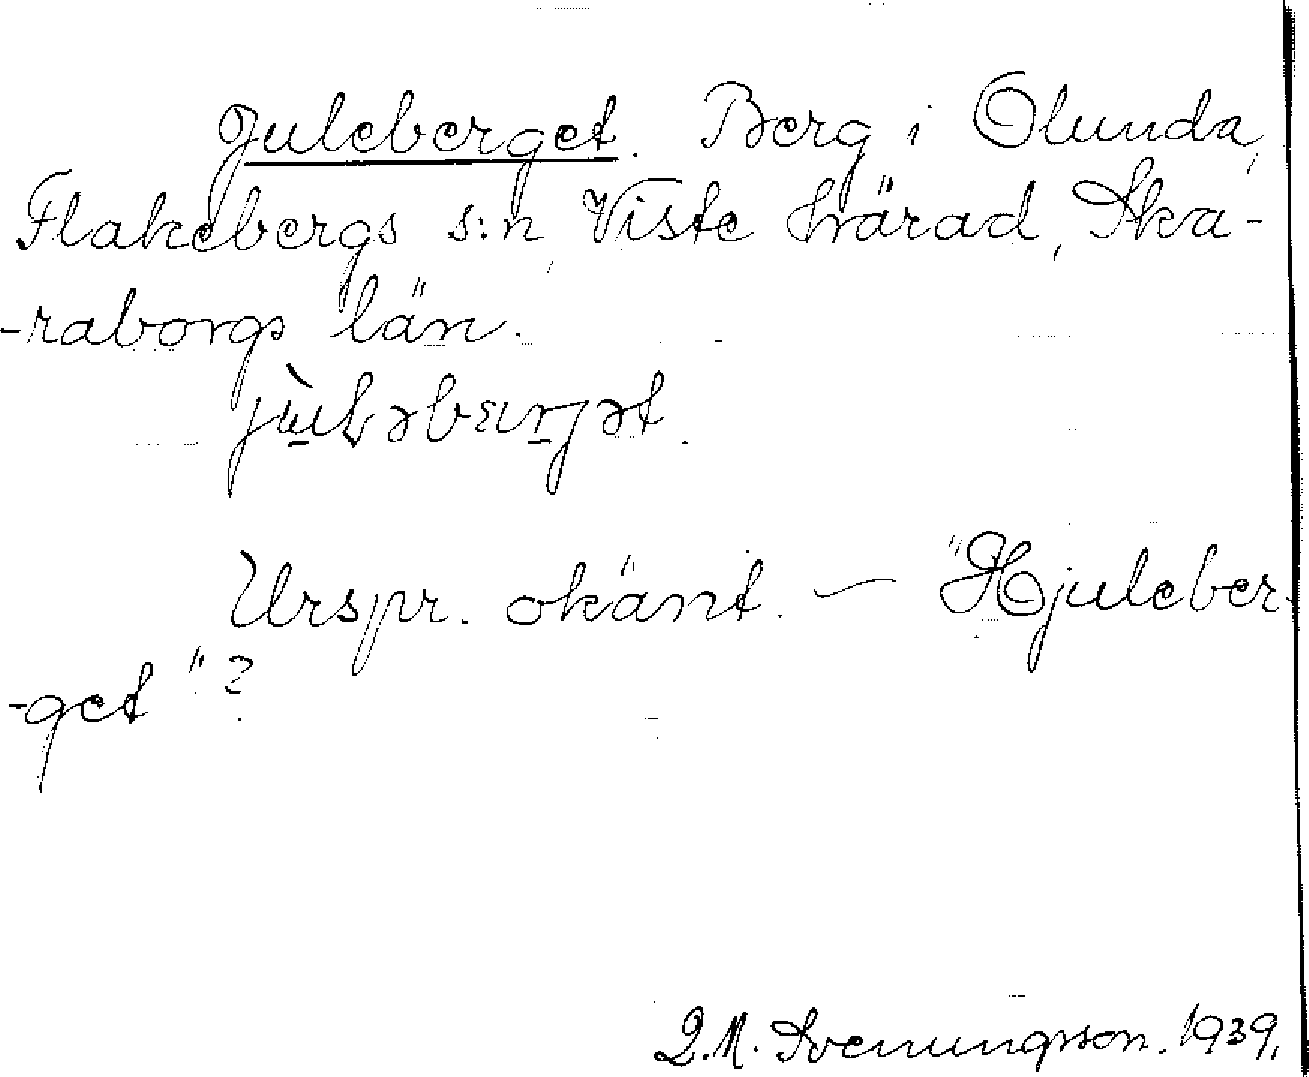 Juleberget. Berg i Olunda,
Flakebergs s:n, Viste härad, Ska-
-raborgs län.
Urspr. okänt. — "Hjuleber-
-get"?
M. Svenungsson. 1939.